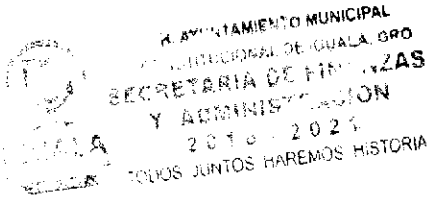 H. AYUNTAMIENTO MUNICIPAL
CONSTITUCIONAL DE IGUALA, GRO
SECRETARIA DE FINANZAS
Y ADMINISTRACION
2018 - 2021
IGUALA
TODOS JUNTOS HAREMOS HISTORIA